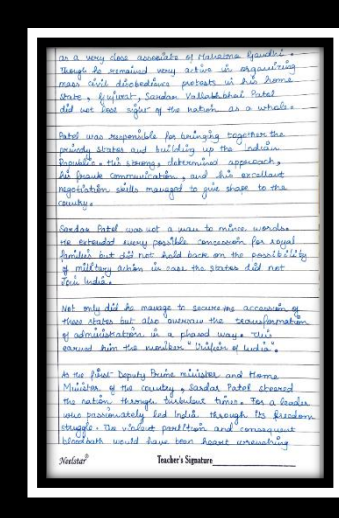 as a very close associate of Mahatma Gandhi.
Though he remained very active in organizing
mass civil disobedience protests in his home
state, Gujurat, Sardar Vallabhbhai Patel
did not lose sight of the nation as a whole.
Patel was responsible for bringing together the
princely states and building up the Indian
Republic. His strong, determined approach,
his frank communication, and his excellent
negotiation skills managed to give shape to the
country.
Sardar Patel was not a man to mince words.
He extended every possible concession for royal
families but did not hold back on the possibility
of military action in case the states did not
join India.
Not only did he manage to secure the accession of
these states but also oversaw the transformation
of administration in a phased way. This
earned him the moniker "Unifier of India".
As the first Deputy Prime minister and Home
Minister of the country, Sardar Patel steered
the nation through turbulent times. For a leader
who passionately led India through its freedom
struggle. The violent partition and consequent
bloodbath would have been heart wrenching
Neelstar Teacher's Signature